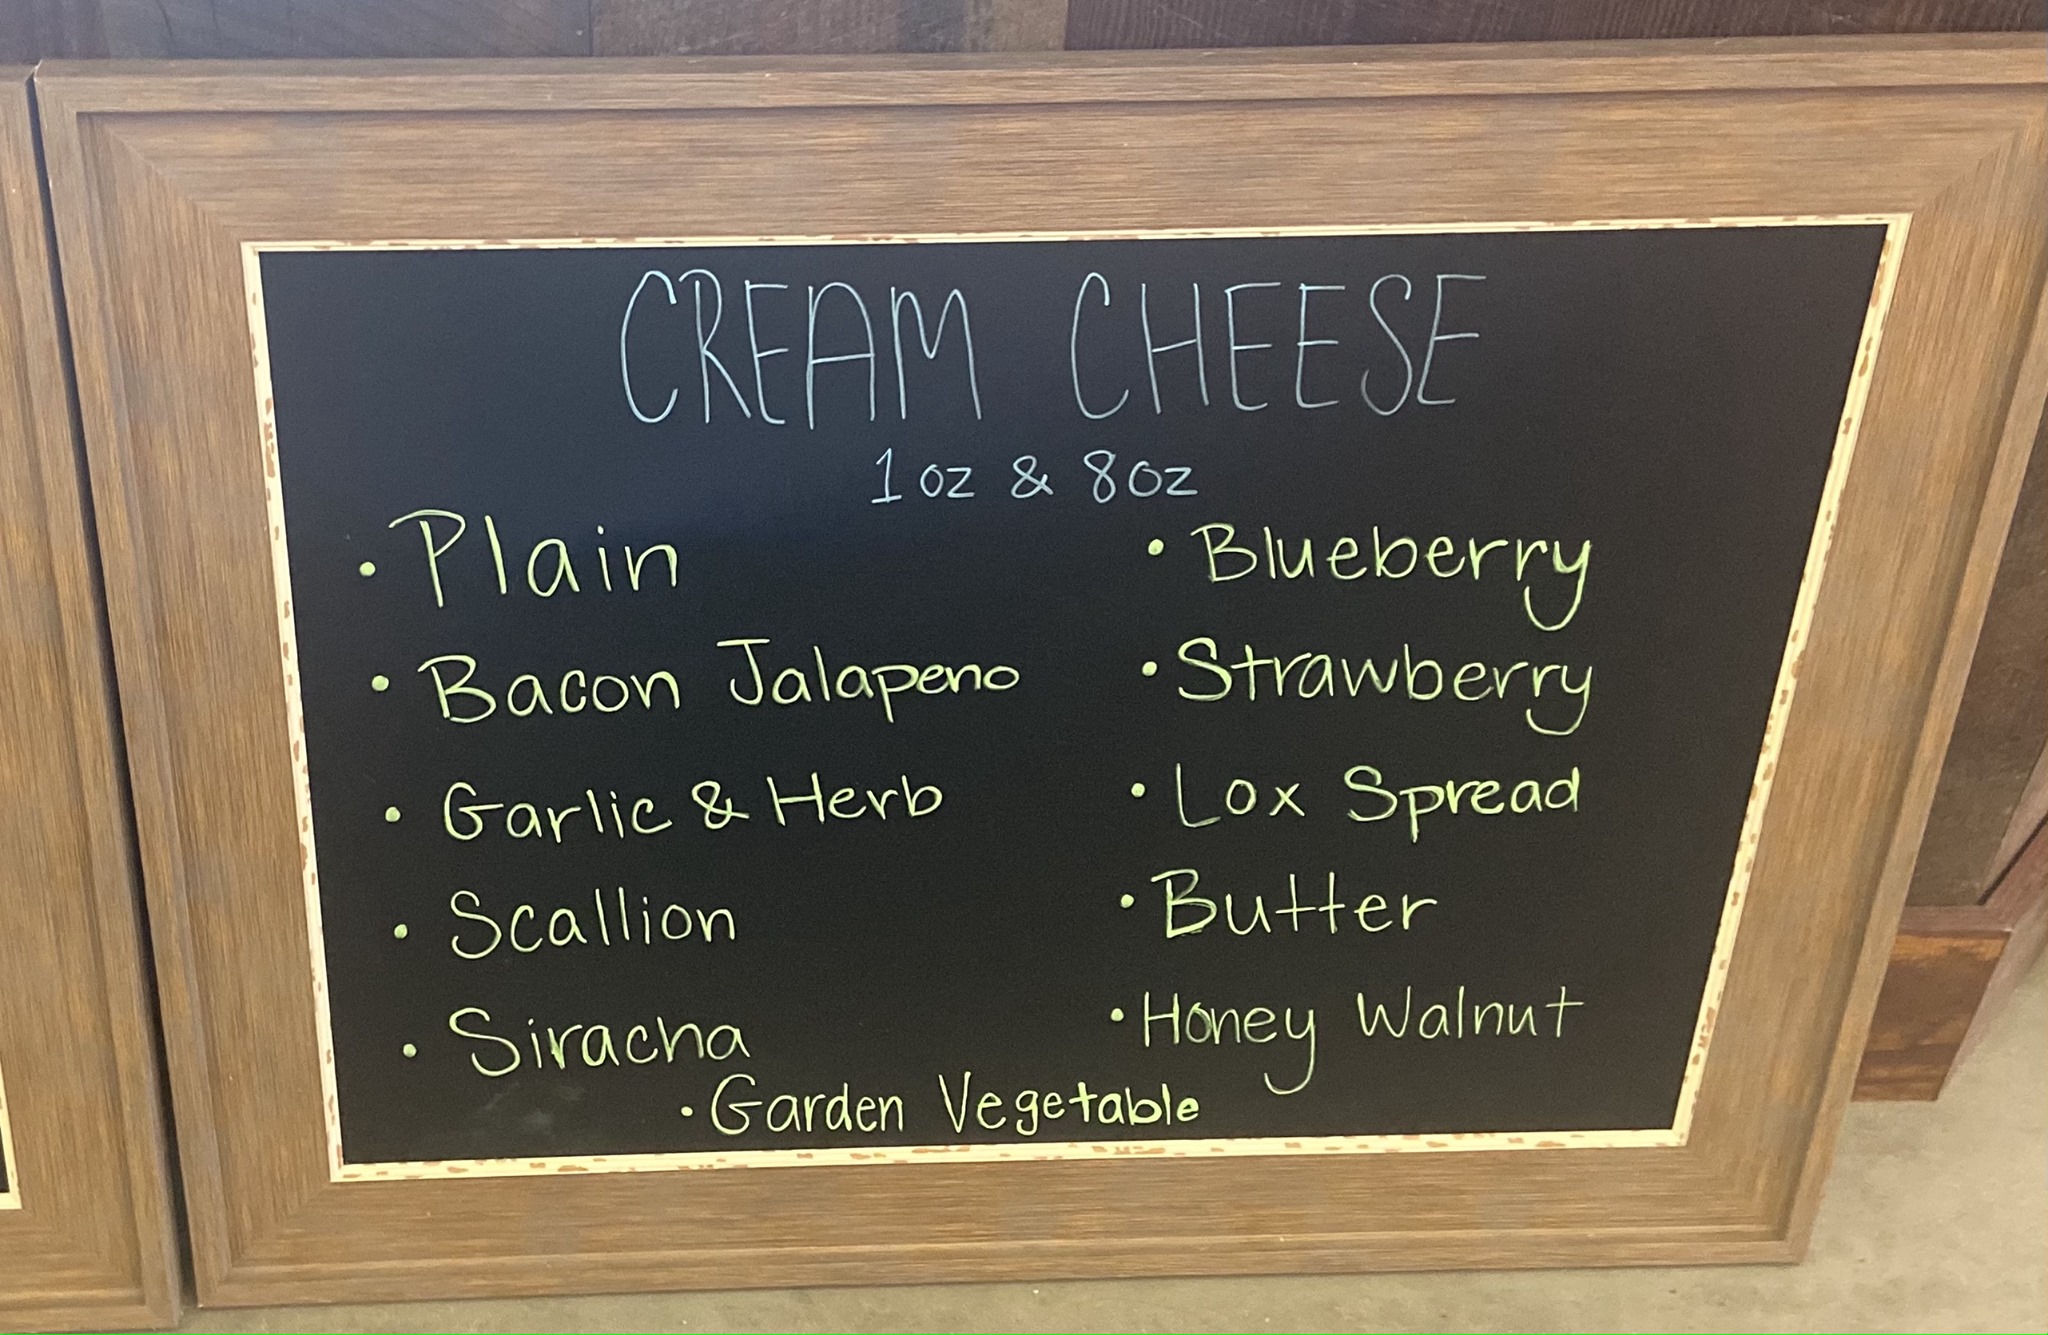 CREAM CHEESE
1 oz & 8oz
• Plain
• Bacon Jalapeno
• Garlic & Herb
• Scallion
• Siracha
• Blueberry
• Strawberry
• Lox Spread
• Butter
• Honey Walnut
• Garden Vegetable